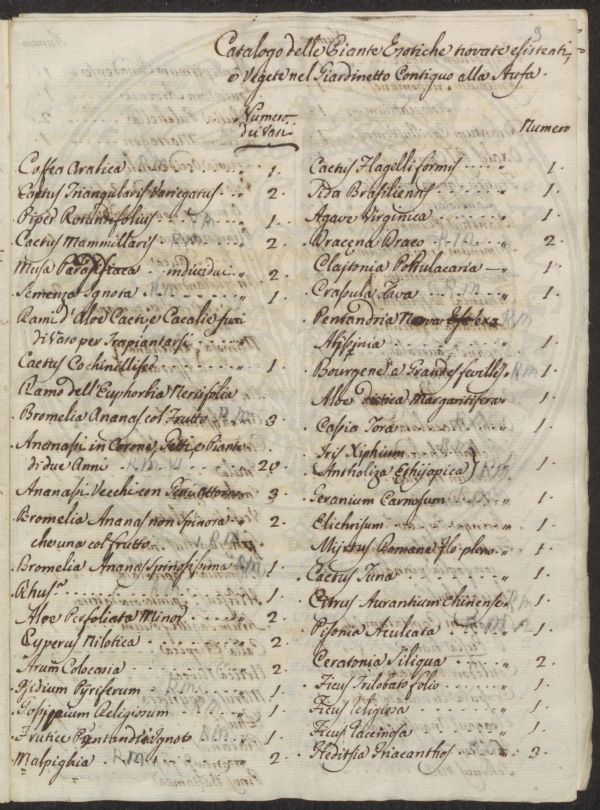 3
Catalogo delle Piante Esotiche trovate esistenti,
e Vegete nel Giardinetto Contiguo alla Stufa.
Numero
dei Vasi
Numero
Coffea Arabica 1.
Cactus Triangularis Varregatus 2.
Piper Rotundifolius 1.
Cactus Mammillaris 2.
Musa Paradisiaca individui 2.
Semenza Ignota 1.
Rami d'Aloe Cacti, e Cacalie fuori
di Vaso per Trapiantarsi
Cactus Cochinillifer 1
Ramo dell'Euphorbia Neriifolia
Bromelia Ananas col Frutto 3
Ananassi in Corone, Getti, e Piante
di due Anni 20
Ananassi Vecchi con 3
Bromelia Ananas non Spinosa 2.
che una col frutto
Bromelia Ananas Spinosissima 1.
Rhus 1.
Aloe Perfoliata Minor 2.
Cyperus Nilotica 2.
Arum Colocasia 2.
Psidium Pyriferum 1.
Gossipium Religiosum 1.
Frutice Pentandria Ignoto 1.
Malpighia 2.
Cactus Flagelliformis 1.
Sida Brasiliensis 1.
Agave Virginica 1.
Dracena Draco 2.
Clajtonia Portulacaria 1.
Crassula 1.
Pentandria Nova
Bourgene a Grandes feuilles 1.
Aloe Margaritifera 1.
Cassia Tora 1.
Iris Xiphium
Antholiza Ethijopica) 1.
Geranium Carnosum 1.
Elichrisum 1.
Mijrtus Romana flo: pleno 1.
Cactus Tuna 1.
Citrus Aurantium Chinense 1.
Pisonia Aculeata 1.
Ceratonia Siliqua 2.
Ficus Trilobato folio 1.
Ficus Religiosa 1.
Ficus Racemosa 1.
Gleditsia Triacanthos 3.